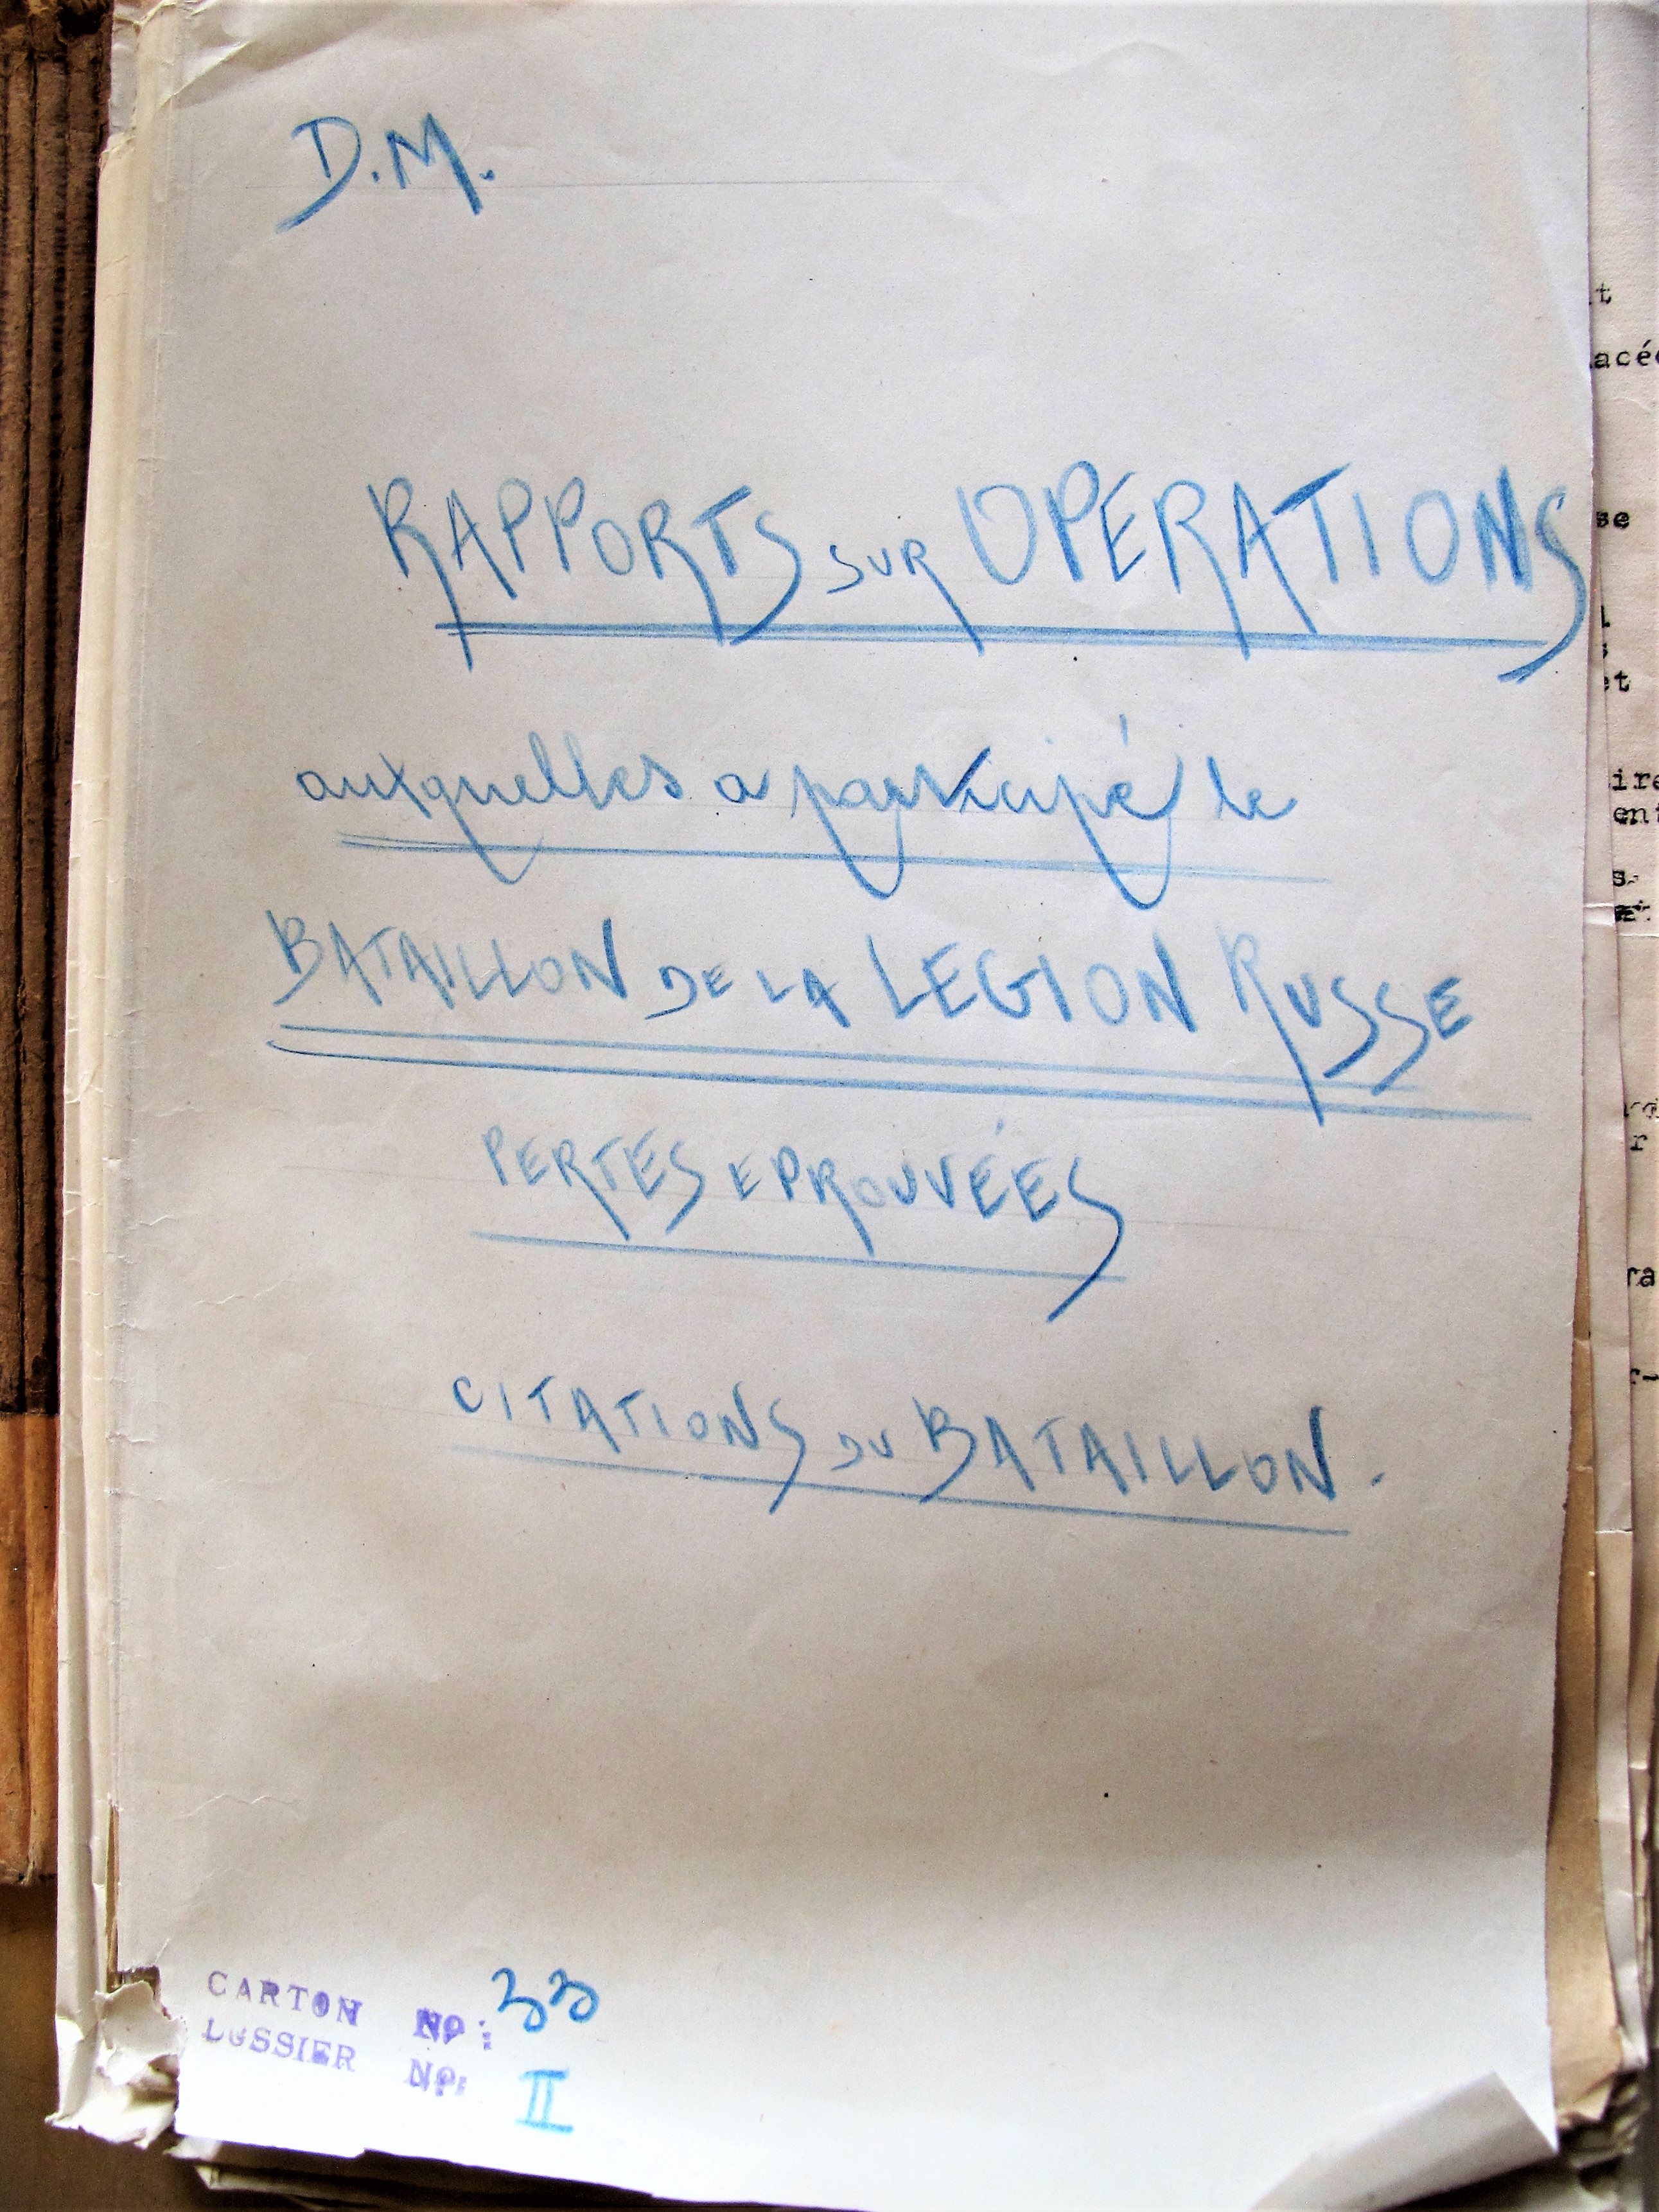 D.M.
RAPPORTS SUR OPERATIONS
auxquelles a participé le
BATAILLON DE LA LEGION RUSSE
PERTES EPROUVÉES
CITATIONS DU BATAILLON.
CARTON No: 33
DOSSIER No: II